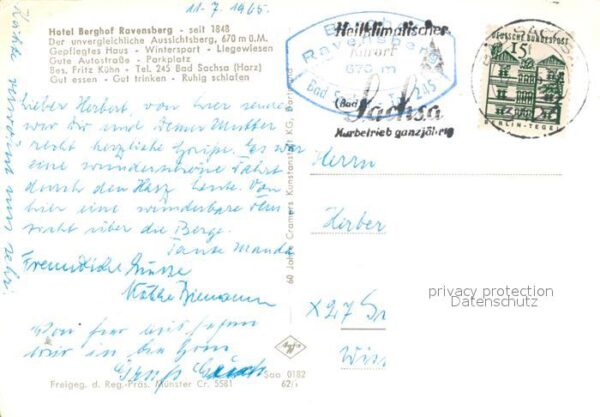 11.7.1965
Hotel Berghof Ravensberg - seit 1848
Der unvergleichliche Aussichtsberg, 670 m ü.M.
Gepflegtes Haus - Wintersport - Liegewiesen
Gute Autostraße - Parkplatz
Bes. Fritz Kühn - Tel. 245 Bad Sachsa (Harz)
Gut essen - Gut trinken - Ruhig schlafen
Heilklimatischer
Kurort
670 m
Bad Tel. 245
(Bad
Sachsa
Kurbetrieb ganzjährig
DEUTSCHE BUNDESPOST
15
BERLIN-TEGEL
Lieber Herbert, von hier
wir Dir und Deiner Mutter
recht herzliche Grüße. Es war
eine wunderschöne Fahrt
durch den Harz heute. Von
hier eine wunderbare
sicht über die Berge.
Tante
Freundliche Grüsse
Käthe
Von hier
wir in den
Gruß
Herrn
Herber
privacy protection
Datenschutz
60 Jahre Cramers Kunstanstalt KG, Dortmund
Agfa
Sao 0182
62/1
Freigeg. d. Reg.-Präs. Münster Cr. 5581